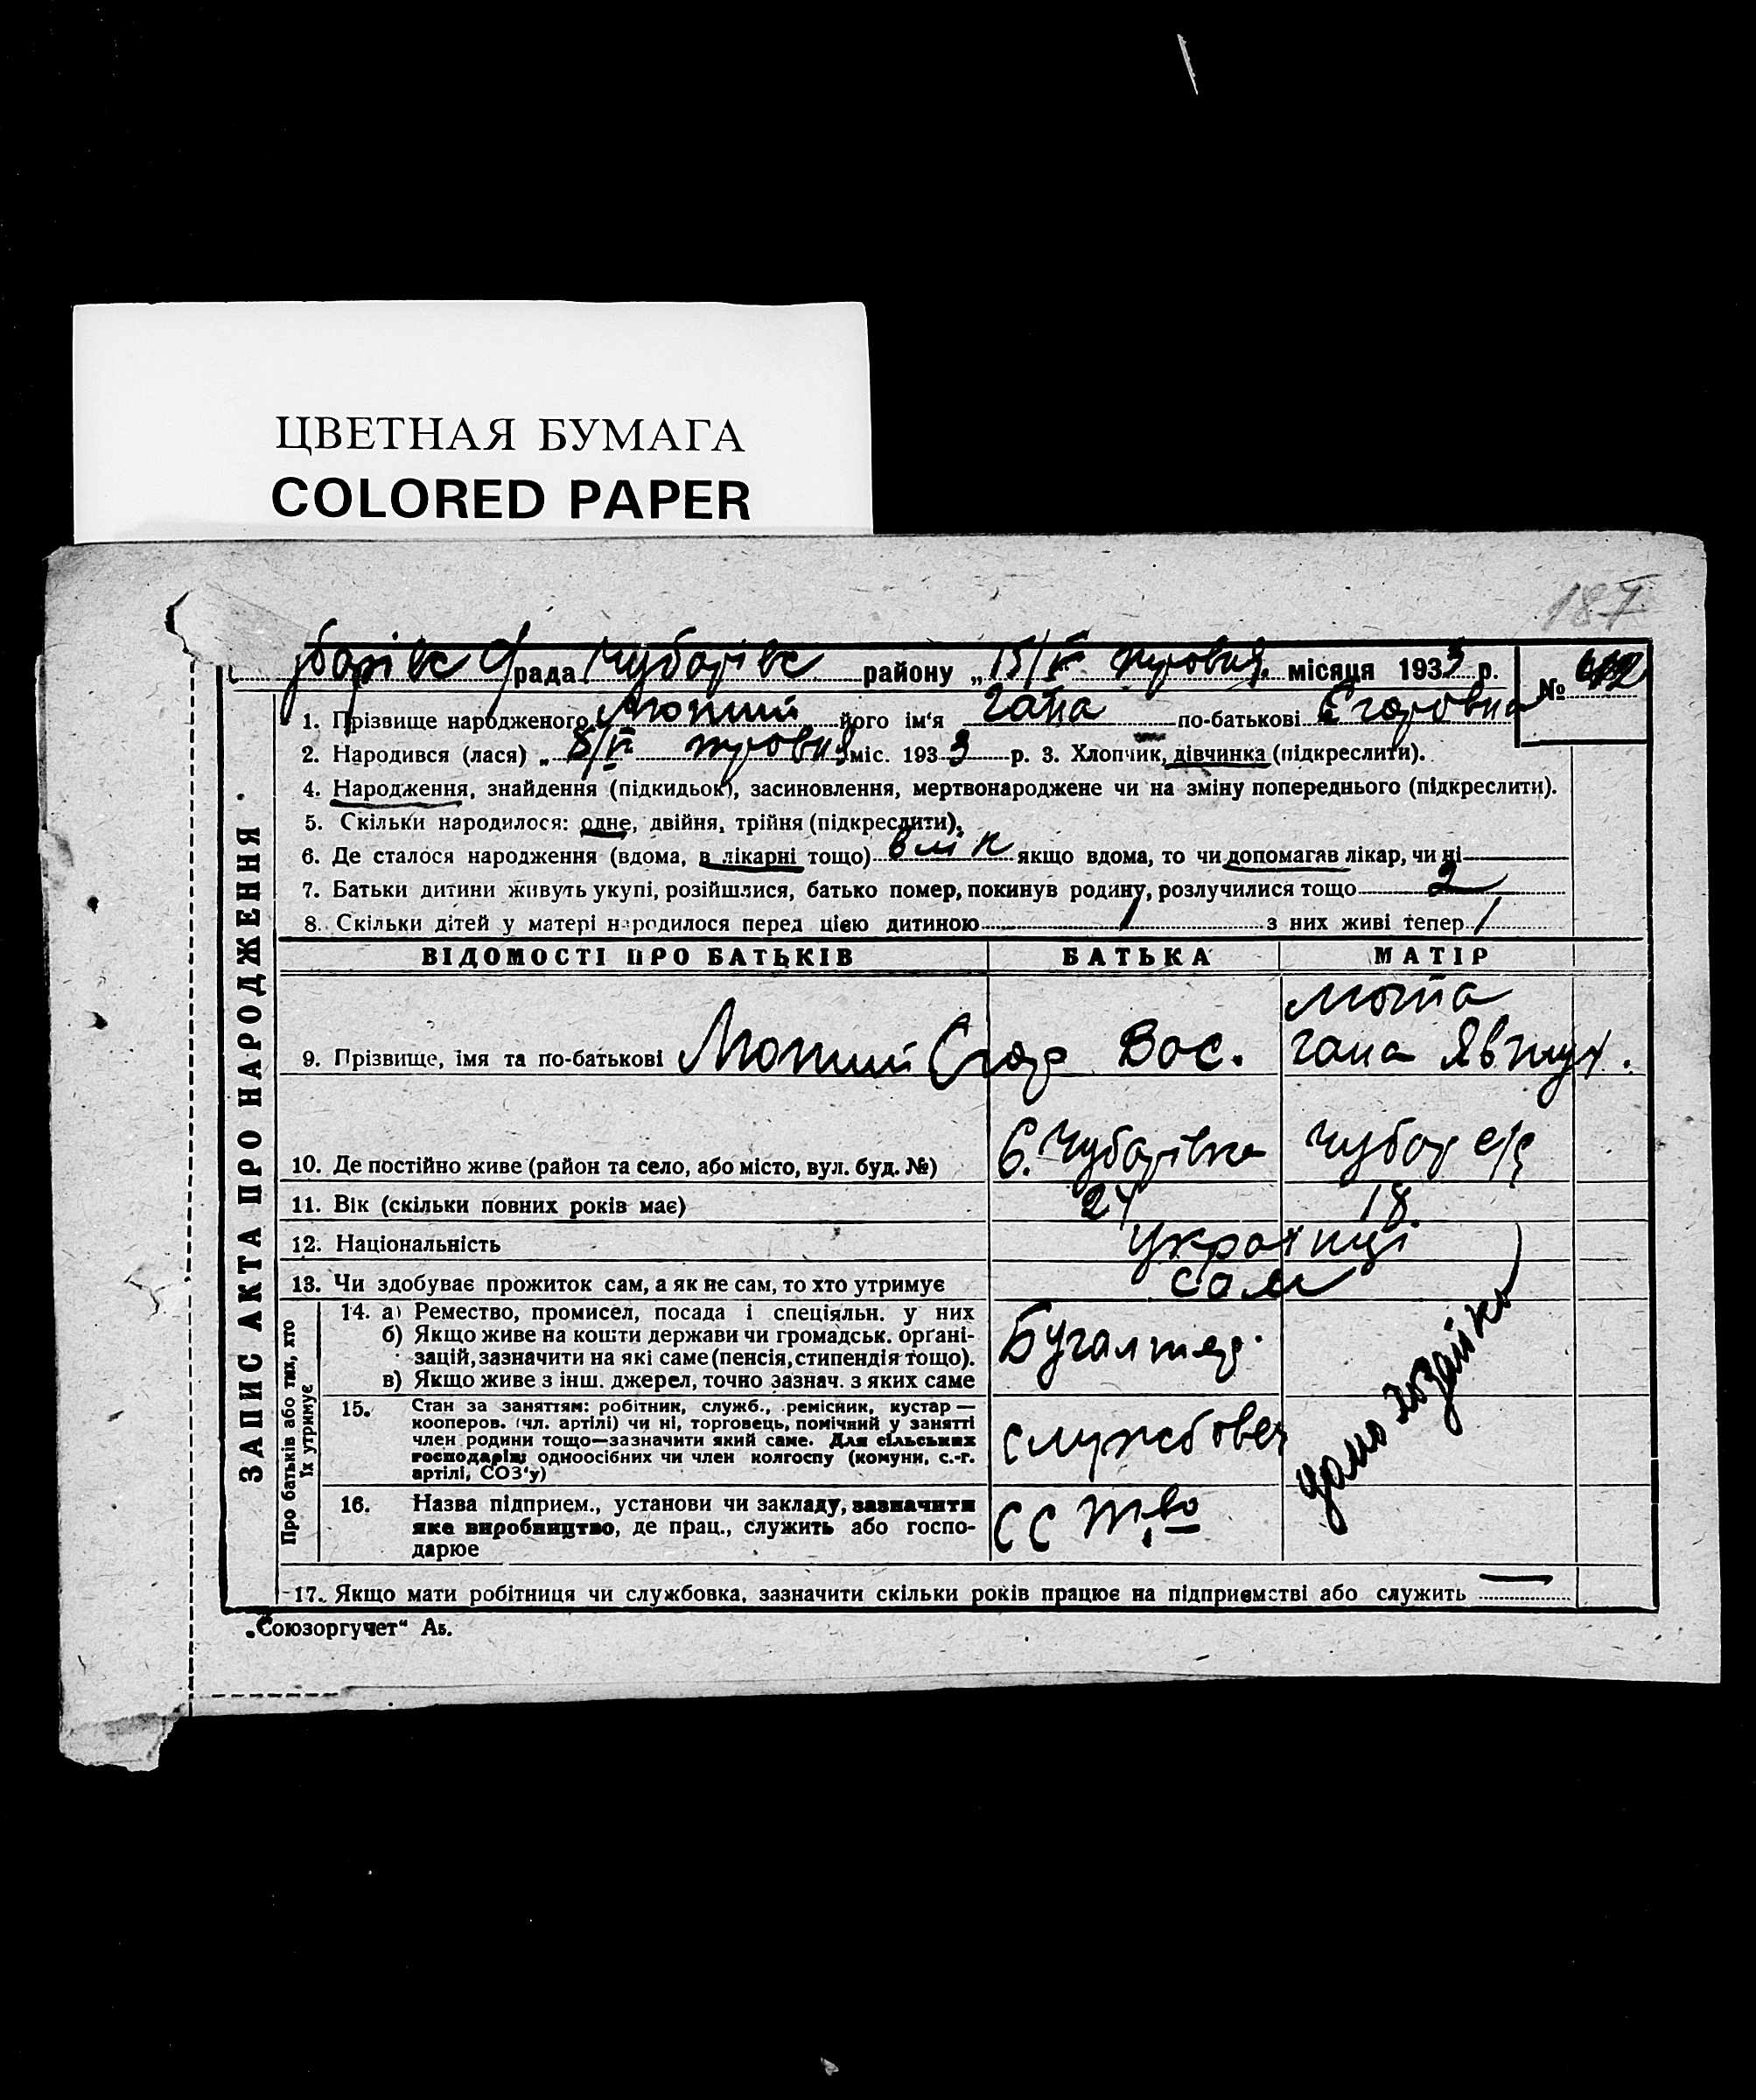 ЦВЕТНАЯ БУМАГА
COLORED PAPER
187
рада Чубарівс району „15/V травня місяця 1933 р.
№ 412
1. Прізвище народженого його ім'я Гана по-батькові Єгоровна
2. Народився (лася) „8/V травня міс. 1933 р. 3. Хлопчик, дівчинка (підкреслити).
4. Народження, знайдення (підкидьок), засиновлення, мертвонароджене чи на зміну попереднього (підкреслити).
5. Скільки народилося: одне, двійня, трійня (підкреслити).
6. Де сталося народження (вдома, в лікарні тощо) якщо вдома, то чи допомагав лікар, чи ні
7. Батьки дитини живуть укупі, розійшлися, батько помер, покинув родину, розлучилися тощо 2
8. Скільки дітей у матері народилося перед цією дитиною 1 з них живі тепер 1
ЗАПИС АКТА ПРО НАРОДЖЕННЯ
ВІДОМОСТІ ПРО БАТЬКІВ БАТЬКА МАТІР
9. Прізвище, імя та по-батькові Єгор Вас. Гана Явтух.
10. Де постійно живе (район та село, або місто, вул. буд. №) с. Чубарівка Чубар с/р
11. Вік (скільки повних років має) 24 18
12. Національність Українці
13. Чи здобуває прожиток сам, а як не сам, то хто утримує сам
Про батьків або тих, хто
їх утримує
14. а) Ремество, промисел, посада і спеціяльн. у них
б) Якщо живе на кошти держави чи громадськ. орґані-
зацій, зазначити на які саме (пенсія, стипендія тощо).
в) Якщо живе з інш. джерел, точно зазнач. з яких саме
Бугалтер.
15. Стан за заняттям: робітник, служб., ремісник, кустар —
кооперов. (чл. артілі) чи ні, торговець, помічний у занятті
член родини тощо—зазначити який саме. Для сільських
господарів: одноосібних чи член колгоспу (комуни, с.-г.
артілі, СОЗ'у)
службовец
домохозяйка
16. Назва підприєм., установи чи закладу, зазначити
яке виробництво, де прац., служить або госпо-
дарює
СС т-во
17. Якщо мати робітниця чи службовка, зазначити скільки років працює на підприємстві або служить —
„Союзоргучет“ А5.